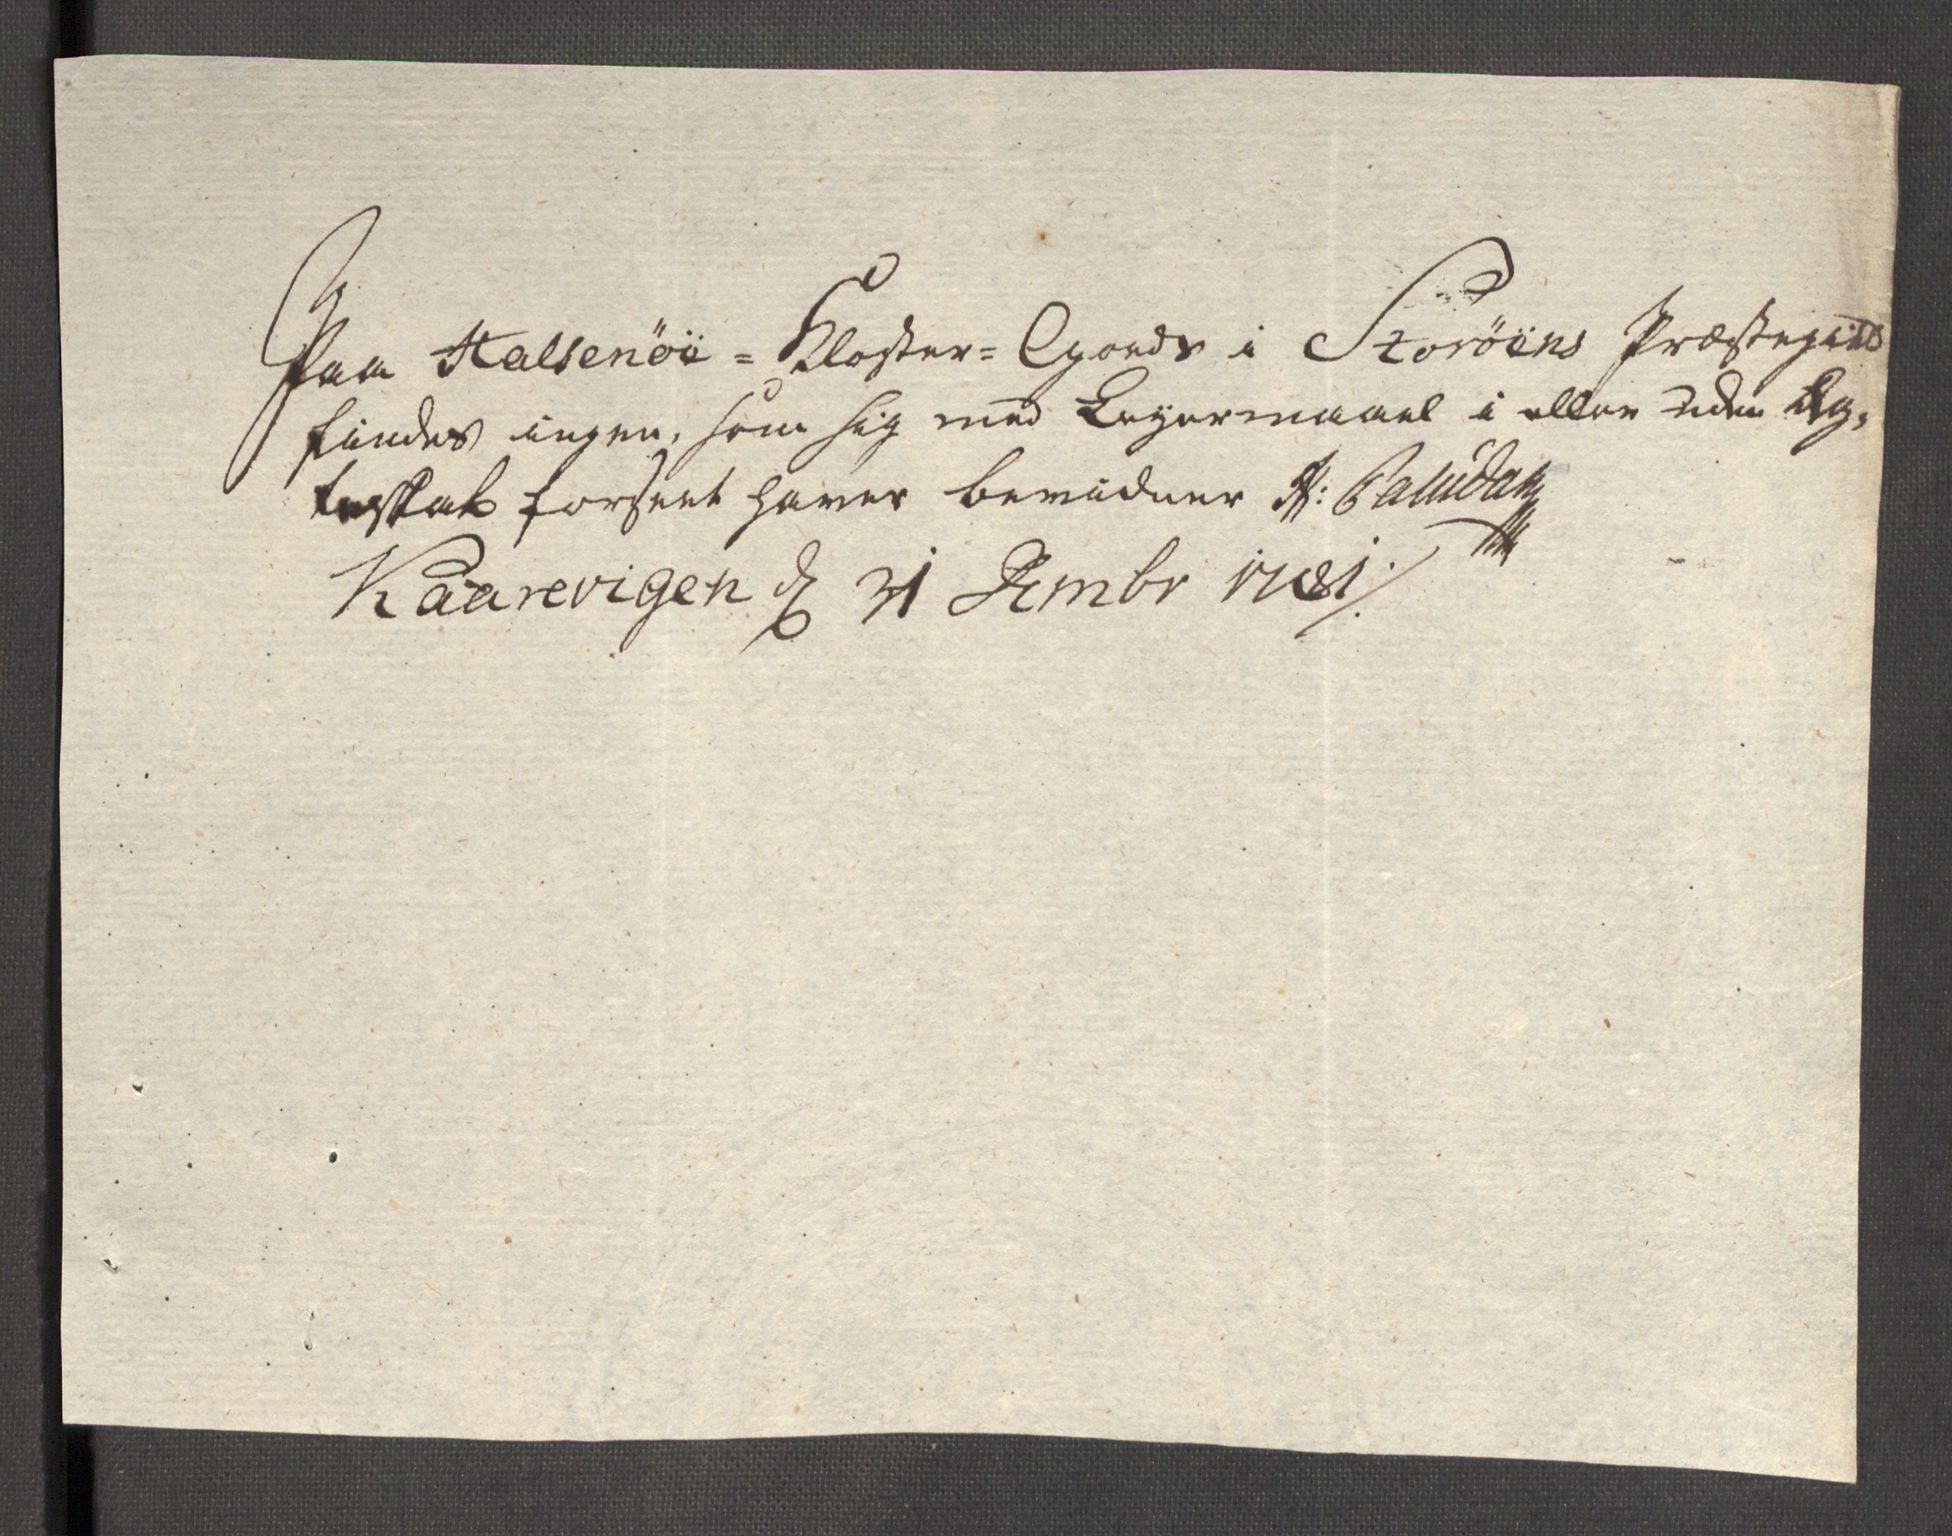 Paa Halsenöi = Kloster = Goeds i Storöens Præstegield
findes ingen, som sig med Leyermaael i eller uden Eg,
teskab forseet haver bevidner H: Paludan
Kaarevigen d 31 Xmbr 1781.